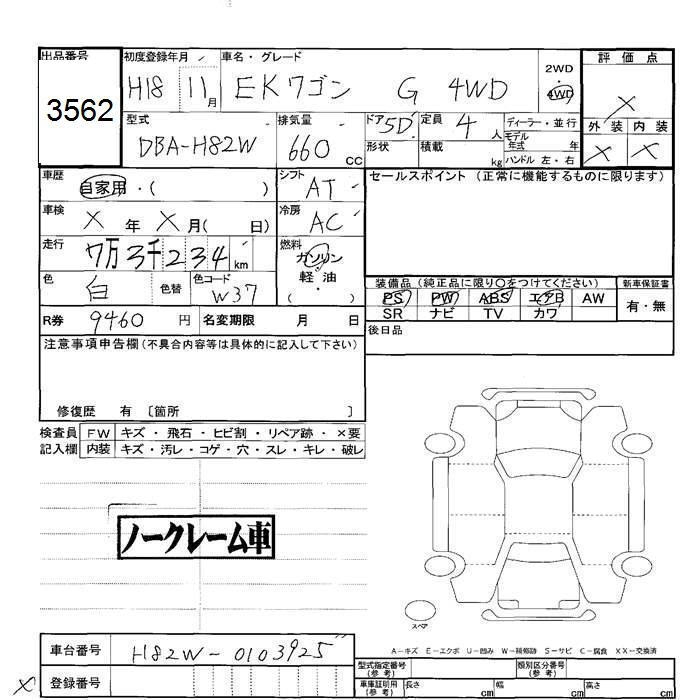 出品番号 初度登録年月 車名・グレード 2WD 評価点
3562 H18 11月 EKワゴン G 4WD ・ 4WD X
型式 排気量 ドア 5D 定員 4人 ディーラー・並行 外装 内装
DBA-H82W 660cc 形状 積載 kg モデル年式 年 X X
ハンドル 左・右
車歴 自家用・( ) シフト AT セールスポイント(正常に機能するものに限ります)
車検 X年 X月( 日) 冷房 AC
走行 7万3千234km 燃料 ガソリン・軽油
色 白 色替 色コード W37 ( )
装備品(純正品に限り○をつけてください) 新車保証書
PS PW ABS エアB AW 有・無
SR ナビ TV カワ
R券 9460円 名変期限 月 日 後日品
注意事項申告欄(不具合内容等は具体的に記入して下さい)
修復歴 有 〔箇所 〕
検査員 FW キズ・飛石・ヒビ割・リペア跡・×要
記入欄 内装 キズ・汚レ・コゲ・穴・スレ・キレ・破レ
ノークレーム車
スペア
A-キズ E-エクボ U-凹み W-補修跡 S-サビ C-腐食 XX-交換済
車台番号 H82W-0103925
X 登録番号
型式指定番号(参考) 類別区分番号(参考)
車庫証明用(参考) 長さ cm 幅 cm 高さ cm